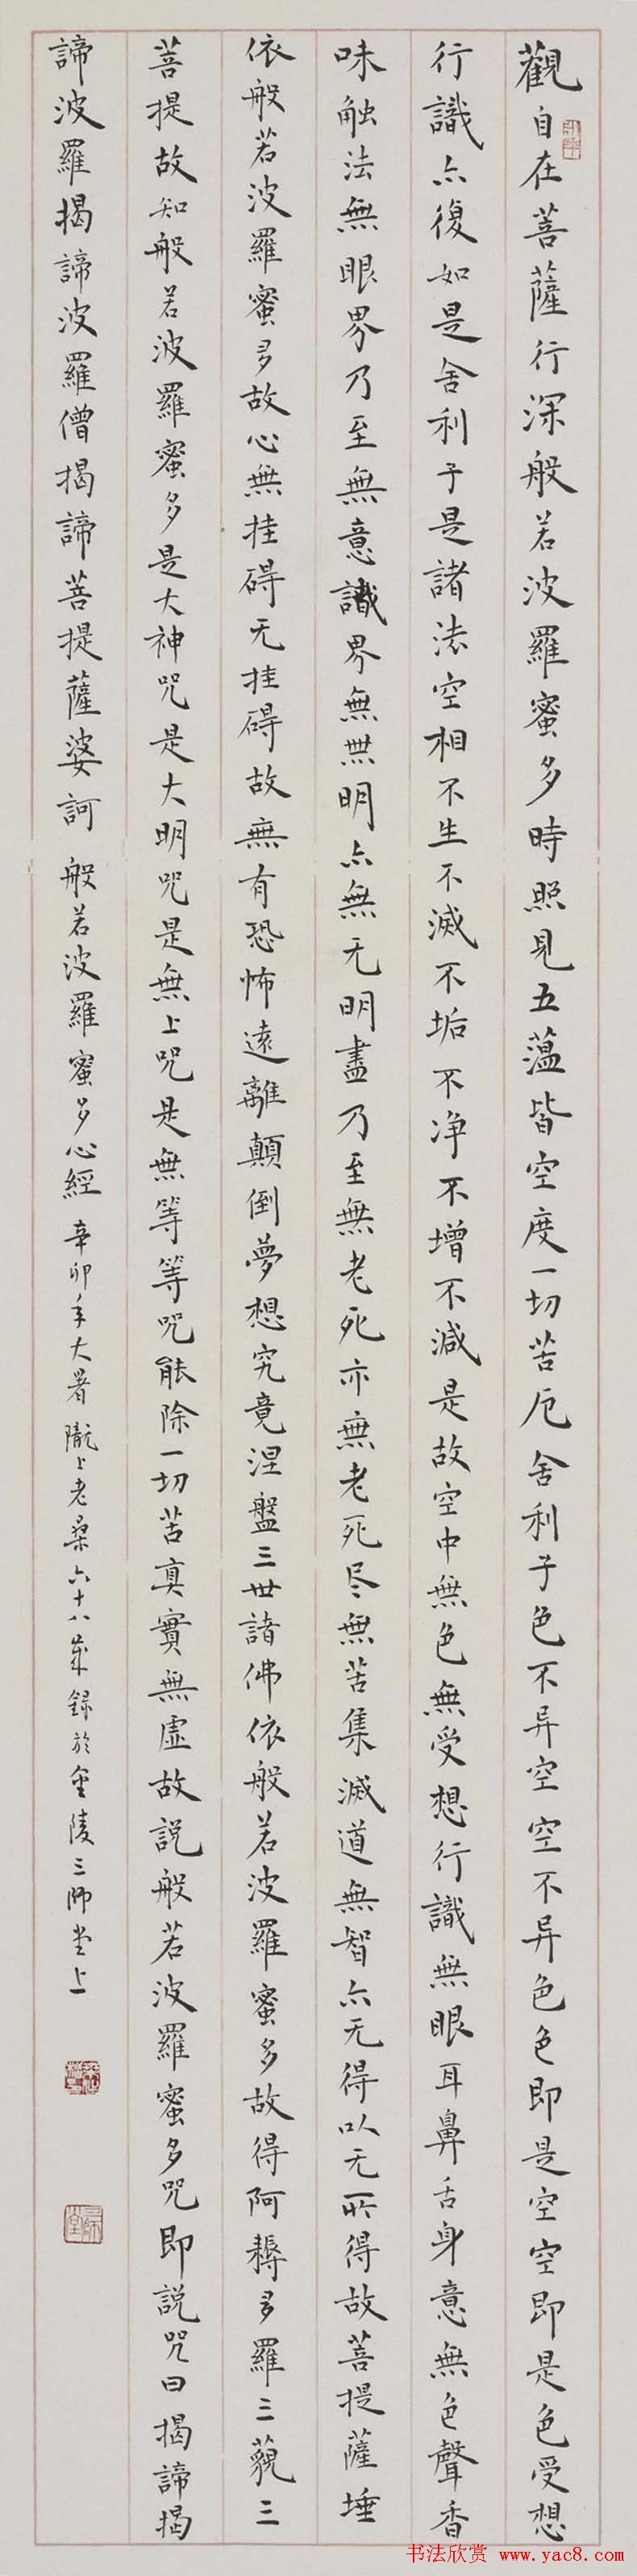 觀自在菩薩行深般若波羅蜜多時照見五蕰皆空度一切苦厄舍利子色不异空空不异色色即是空空即是色受想
行識亦復如是舍利子是諸法空相不生不滅不垢不净不增不減是故空中無色無受想行識無眼耳鼻舌身意無色聲香
味触法無眼界乃至無意識界無無明亦無无明盡乃至無老死亦無老死尽無苦集滅道無智亦无得以无所得故菩提薩埵
依般若波羅蜜多故心無挂碍无挂碍故無有恐怖遠離顛倒夢想究竟涅盤三世諸佛依般若波羅蜜多故得阿耨多羅三藐三
菩提故知般若波羅蜜多是大神咒是大明咒是無上咒是無等等咒能除一切苦真實無虛故説般若波羅蜜多咒即説咒曰揭諦揭
諦波羅揭諦波羅僧揭諦菩提薩婆訶 般若波羅蜜多心經 辛卯年大暑隴上老桑六十八歲録於金陵三師堂上
三師堂
书法欣赏 →www.yac8.com